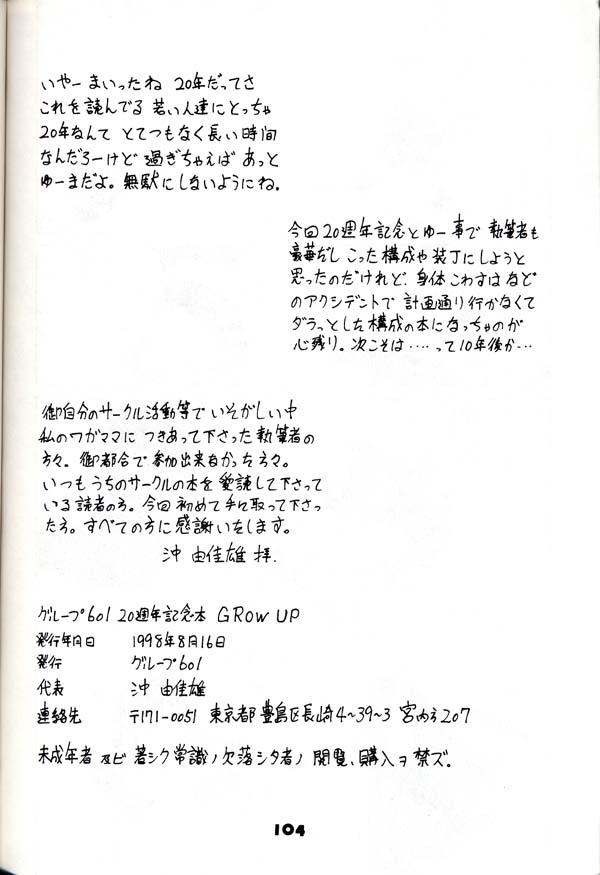 いやー まいったね 20年だってさ
これを読んでる 若い人達にとっちゃ
20年なんて とてつもなく長い時間
なんだろーけど 過ぎちゃえば あっと
ゆーまだよ。無駄にしないようにね。
今回20週年記念とゆー事で 執筆者も
豪華だし こった構成や装丁にしようと
思ったのだけれど、身体こわすは など
のアクシデントで 計画通り行かなくて
ダラっとした構成の本になっちゃのが
心残り。次こそは……って10年後か…
御自分のサークル活動等で いそがしい中
私のワガママに つきあって下さった執筆者の
方々。御都合で参加出来なかった方々。
いつもうちのサークルの本を愛読して下さって
いる読者の方。今回初めて手に取って下さっ
た方。すべての方に感謝いたします。
沖 由佳雄 拝.
グループ601 20週年記念本 GROW UP
発行年月日 1998年8月16日
発行 グループ601
代表 沖 由佳雄
連絡先 〒171-0051 東京都豊島区長崎4~39~3 宮め方207
未成年者 及ビ 著シク常識ノ欠落シタ者ノ 閲覧、購入ヲ禁ズ。
104